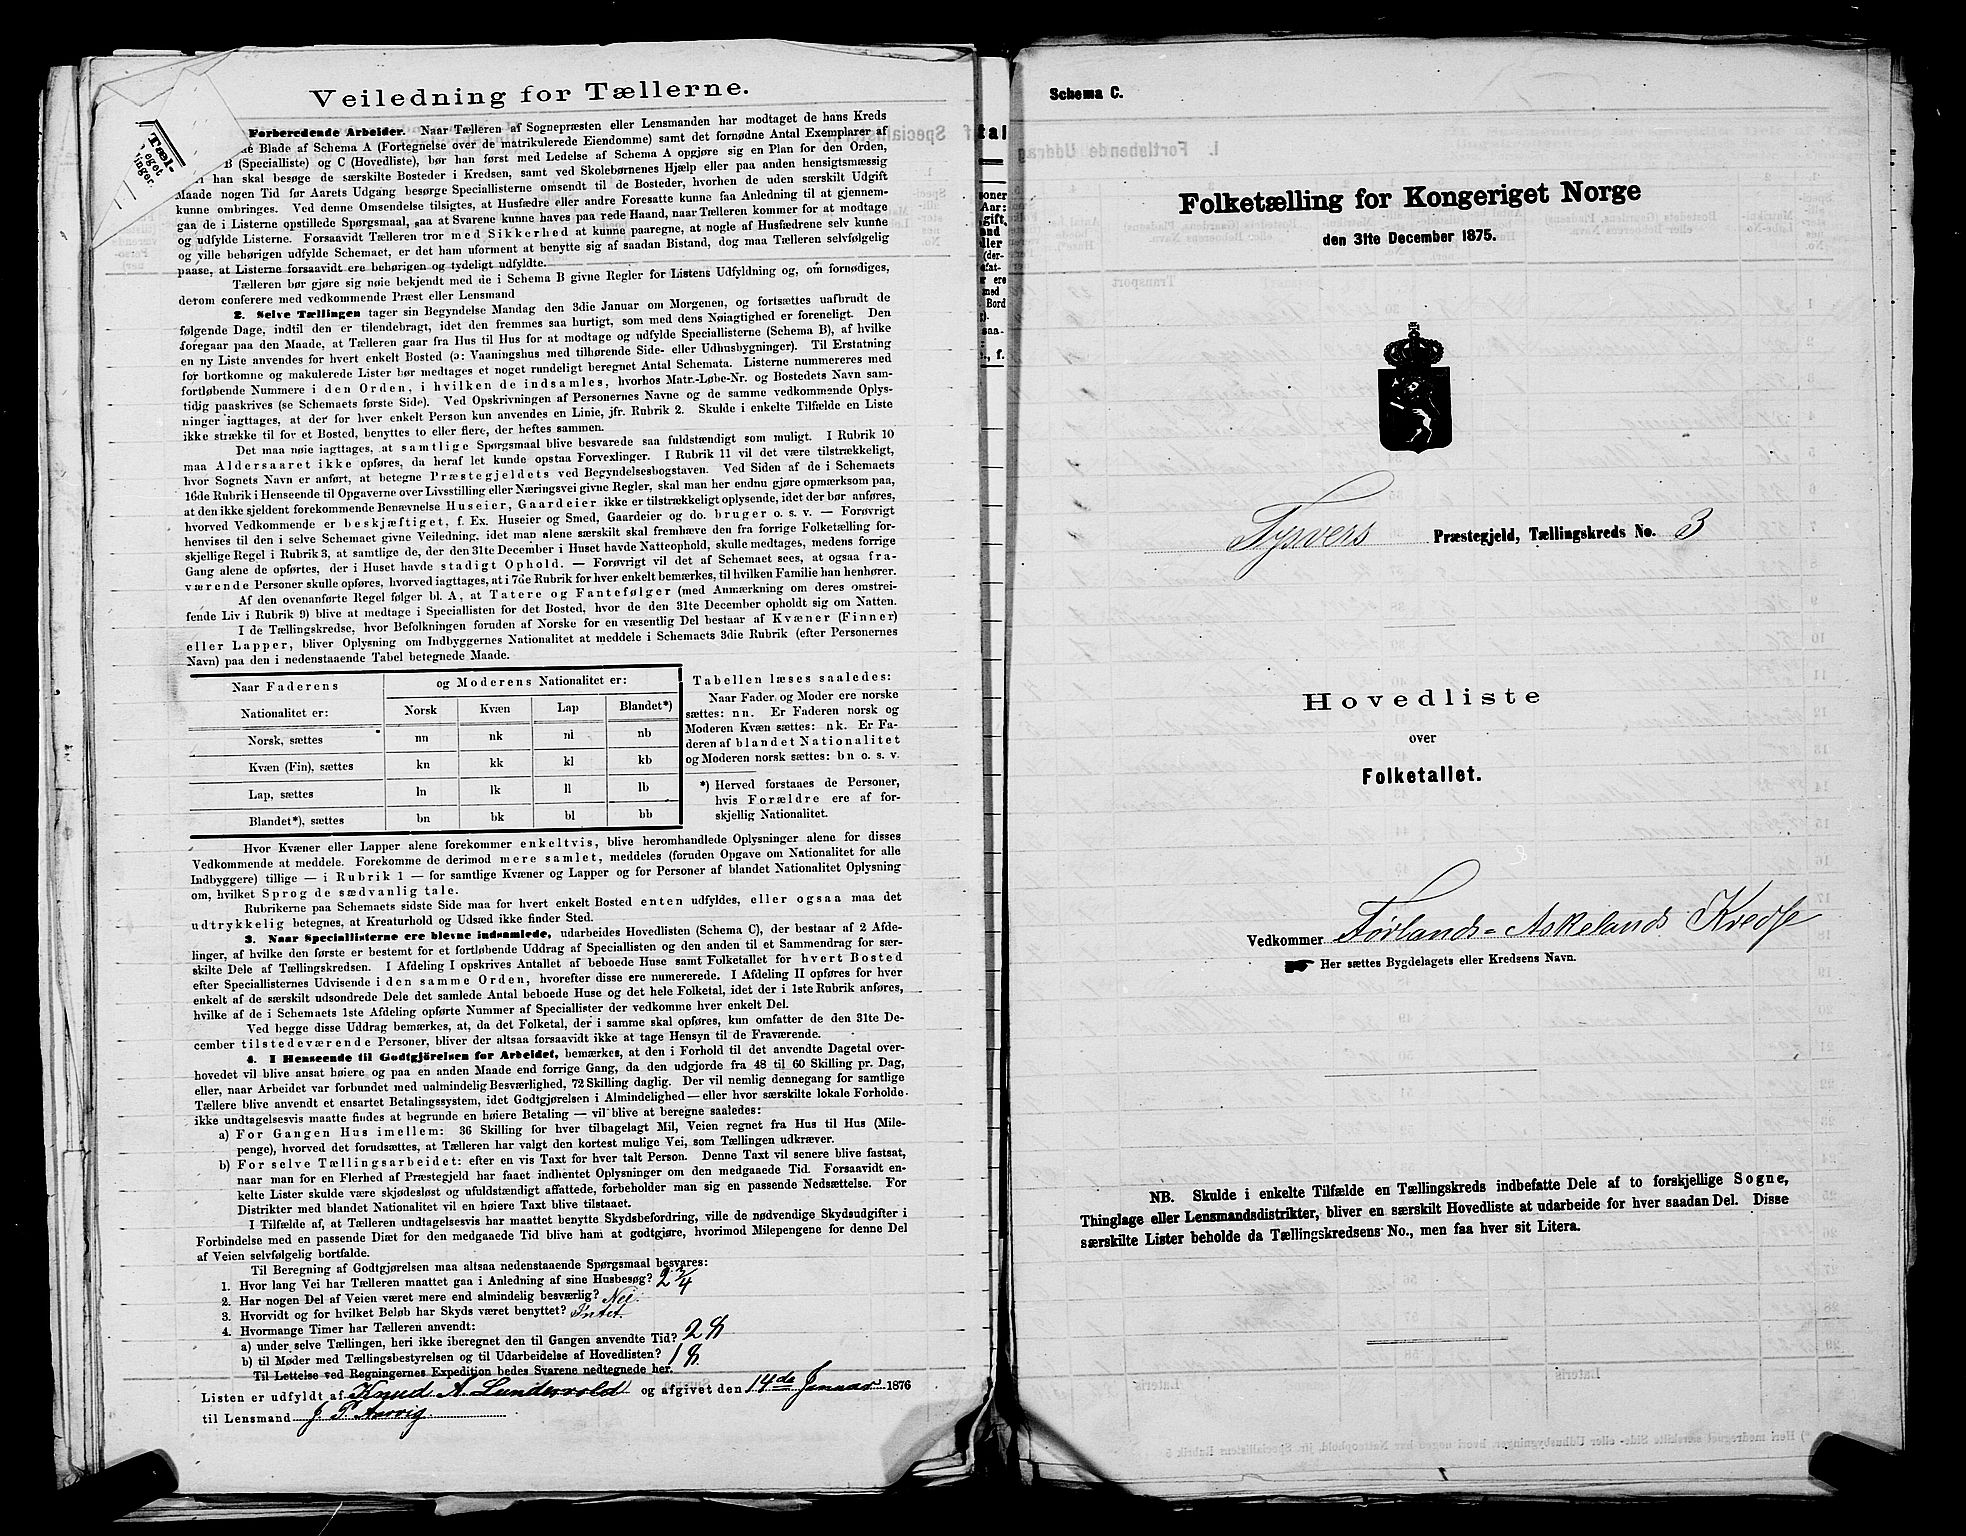 Veiledning for Tællerne.
Forberedende Arbeider. Naar Tælleren af Sognepræsten eller Lensmanden har modtaget de hans Kreds
Blade af Schema A (Fortegnelse over de matrikulerede Eiendomme) samt det fornødne Antal Exemplarer af
B (Specialliste) og C (Hovedliste), bør han først med Ledelse af Schema A opgjøre sig en Plan for den Orden,
han skal besøge de særskilte Bosteder i Kredsen, samt ved Skolebørnenes Hjælp eller paa anden hensigtsmæssig
Maade nogen Tid før Aarets Udgang besørge Speciallisterne omsendt til de Bosteder, hvorhen de uden særskilt Udgift
kunne ombringes. Ved denne Omsendelse tilsigtes, at Husfædre eller andre Foresatte kunne faa Anledning til at gjennem-
gaa de i Listerne opstillede Spørgsmaal, saa at Svarene kunne haves paa rede Haand, naar Tælleren kommer for at modtage
og udfylde Listerne. Forsaavidt Tælleren tror med Sikkerhed at kunne paaregne, at nogle af Husfædrene selv kunne
og ville behørigen udfylde Schemaet, er det ham uforment at benytte sig af saadan Bistand, dog maa Tælleren selvfølgelig
paase, at Listerne forsaavidt ere behørigen og tydeligt udfyldte.
Tælleren bør gjøre sig nøie bekjendt med de i Schema B givne Regler for Listens Udfyldning og, om fornødiges,
derom conferere med vedkommende Præst eller Lensmand
2. Selve Tællingen tager sin Begyndelse Mandag den 3die Januar om Morgenen, og fortsættes uafbrudt de
følgende Dage, indtil den er tilendebragt, idet den fremmes saa hurtigt, som med dens Nøiagtighed er foreneligt. Den
foregaar paa den Maade, at Tælleren gaar fra Hus til Hus for at modtage og udfylde Speciallisterne (Schema B), af hvilke
en ny Liste anvendes for hvert enkelt Bosted (ɔ: Vaaningshus med tilhørende Side- eller Udhusbygninger). Til Erstatning
for bortkomne og makulerede Lister bør medtages et noget rundeligt beregnet Antal Schemata. Listerne nummereres med
fortløbende Nummere i den Orden, i hvilken de indsamles, hvorhos Matr.-Løbe-Nr. og Bostedets Navn sam-
tidig paaskrives (se Schemaets første Side). Ved Opskrivningen af Personernes Navne og de samme vedkommende Oplys-
ninger iagttages, at der for hver enkelt Person kun anvendes en Linie, jfr. Rubrik 2. Skulde i enkelte Tilfælde en Liste
ikke strække til for et Bosted, benyttes to eller flere, der heftes sammen.
Det maa nøie iagttages, at samtlige Spørgsmaal blive besvarede saa fuldstændigt som muligt. I Rubrik 10
maa Aldersaaret ikke opføres, da heraf let kunde opstaa Forvexlinger. I Rubrik 11 vil det være tilstrækkeligt,
hvor Sognets Navn er anført, at betegne Præstegjeldets ved Begyndelsesbogstaven. Ved Siden af de i Schemaets
16de Rubrik i Henseende til Opgaverne over Livsstilling eller Næringsvei givne Regler, skal man her endnu gjøre opmærksom paa,
at den ikke sjeldent forekommende Benævnelse Huseier, Gaardeier ikke er tilstrækkeligt oplysende, idet der bør anføres,
hvorved Vedkommende er beskjæftiget, f. Ex. Huseier og Smed, Gaardeier og do. bruger o. s. v. — Forøvrigt
henvises til den i selve Schemaet givne Veiledning, idet man alene særskilt skal fremhæve den fra forrige Folketælling for-
skjellige Regel i Rubrik 3, at samtlige de, der den 31te December i Huset havde Natteophold, skulle medtages, medens forrige
Gang alene de opførtes, der i Huset havde stadigt Ophold. — Forøvrigt vil det af Schemaet sees, at ogsaa fra-
værende Personer skulle opføres, hvorved iagttages, at i 7de Rubrik for hver enkelt bemærkes, til hvilken Familie han henhører.
Af den ovenanførte Regel følger bl. A, at Tatere og Fantefølger (med Anmærkning om deres omstrei-
fende Liv i Rubrik 9) blive at medtage i Speciallisten for det Bosted, hvor de den 31te December opholdt sig om Natten.
I de Tællingskredse, hvor Befolkningen foruden af Norske for en væsentlig Del bestaar af Kvæner (Finner)
eller Lapper, bliver Oplysning om Indbyggernes Nationalitet at meddele i Schemaets 3die Rubrik (efter Personernes
Navn) paa den i nedenstaaende Tabel betegnede Maade.
Naar Faderens og Moderens Nationalitet er:
Nationalitet er: Norsk Kvæn Lap Blandet*)
Norsk, sættes nn nk nl nb
Kvæn (Fin), sættes kn kk kl kb
Lap, sættes ln lk ll lb
Blandet*), sættes bn bk bl bb
Tabellen læses saaledes:
Naar Fader og Moder ere norske
sættes: nn. Er Faderen norsk og
Moderen Kvæn sættes: nk. Er Fa-
deren af blandet Nationalitet
og Moderen norsk sættes: bn o. s. v.
*) Herved forstaaes de Personer,
hvis Forældre ere af for-
skjellig Nationalitet.
Hvor Kvæner eller Lapper alene forekommer enkeltvis, blive heromhandlede Oplysninger alene for disses
Vedkommende at meddele. Forekomme de derimod mere samlet, meddeles (foruden Opgave om Nationalitet for alle
Indbyggere) tillige — i Rubrik 1 — for samtlige Kvæner og Lapper og for Personer af blandet Nationalitet Oplysning
om, hvilket Sprog de sædvanlig tale.
Rubrikerne paa Schemaets sidste Side maa for hvert enkelt Bosted enten udfyldes, eller ogsaa maa det
udtrykkelig betegnes, at Kreaturhold og Udsæd ikke finder Sted.
3. Naar Speciallisterne ere blevne indsamlede, udarbeides Hovedlisten (Schema C), der bestaar af 2 Afde-
linger, af hvilke den første er bestemt for et fortløbende Uddrag af Speciallisten og den anden til et Sammendrag for sær-
skilte Dele af Tællingskredsen. I Afdeling I opskrives Antallet af beboede Huse samt Folketallet for hvert Bosted
efter Speciallisternes Udvisende i den samme Orden, hvorefter disse ere numererede. I Afdeling II opføres for hver
enkelt af de særskilt udsondrede Dele det samlede Antal beboede Huse og det hele Folketal, idet der i 1ste Rubrik anføres,
hvilke af de i Schemaets 1ste Afdeling opførte Nummer af Speciallister der vedkomme hver enkelt Del.
Ved begge disse Uddrag bemærkes, at, da det Folketal, der i samme skal opføres, kun omfatter de den 31te De-
cember tilstedeværende Personer, bliver der altsaa forsaavidt ikke at tage Hensyn til de Fraværende.
4. I Henseende til Godtgjörelsen for Arbeidet, bemærkes, at den i Forhold til det anvendte Dagetal over-
hovedet vil blive ansat høiere og paa en anden Maade end forrige Gang, da den udgjorde fra 48 til 60 Skilling pr. Dag,
eller, naar Arbeidet var forbundet med ualmindelig Besværlighed, 72 Skilling daglig. Der vil nemlig dennegang for samtlige
Tællere blive anvendt et ensartet Betalingssystem, idet Godtgjørelsen i Almindelighed — eller hvor særskilte lokale Forholde
ikke undtagelsesvis maatte findes at begrunde en høiere Betaling — vil blive at beregne saaledes:
a) For Gangen Hus imellem: 36 Skilling for hver tilbagelagt Mil, Veien regnet fra Hus til Hus (Mile-
penge), hvorved det forudsættes, at Tælleren har valgt den kortest mulige Vei, som Tællingen udkræver.
b) For selve Tællingsarbeidet: efter en vis Taxt for hver talt Person. Denne Taxt vil senere blive fastsat,
naar man for en Flerhed af Præstegjeld har faaet indhentet Oplysninger om den medgaaede Tid. Forsaavidt en-
kelte Lister skulde være skjødesløst og ufuldstændigt affattede, forbeholder man sig en passende Nedsættelse. For
Distrikter med blandet Nationalitet vil en høiere Taxt blive tilstaaet.
I Tilfælde af, at Tælleren undtagelsesvis har maattet benytte Skydsbefordring, ville de nødvendige Skydsudgifter i
Forbindelse med en passende Diæt for den medgaaede Tid blive ham at godtgjøre, hvorimod Milepengene for denne Del
af Veien selvfølgelig bortfalde.
Til Beregning af Godtgjørelsen maa altsaa nedenstaaende Spørgsmaal besvares:
1. Hvor lang Vei har Tælleren maattet gaa i Anledning af sine Husbesøg? 2 3/4
2. Har nogen Del af Veien været mere end almindelig besværlig? Nei.
3. Hvorvidt og for hvilket Beløb har Skyds været benyttet? Intet.
4. Hvormange Timer har Tælleren anvendt:
a) under selve Tællingen, heri ikke iberegnet den til Gangen anvendte Tid? 28
b) til Møder med Tællingsbestyrelsen og til Udarbeidelse af Hovedlisten? 18.
Til Lettelse ved Regningernes Expedition bedes Svarene nedtegnede her.
Listen er udfyldt af Knud A. Lundervold og afgivet den 14de Januar 1876
til Lensmand J. T. Aarvig.
Tæl-
eget
inger.
Schema C.
Folketælling for Kongeriget Norge
den 31te December 1875.
Tysvers Præstegjeld, Tællingskreds No. 3
Hovedliste
over
Folketallet.
Vedkommer Førlands-Askelands Kreds
Her sættes Bygdelagets eller Kredsens Navn.
NB. Skulde i enkelte Tilfælde en Tællingskreds indbefatte Dele af to forskjellige Sogne,
Thinglage eller Lensmandsdistrikter, bliver en særskilt Hovedliste at udarbeide for hver saadan Del. Disse
særskilte Lister beholde da Tællingskredsens No., men faa hver sit Litera.